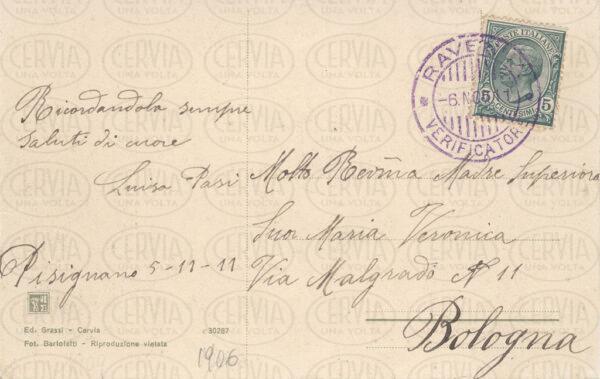 Ricordandola sempre
saluti di cuore
Luisa Pasi
Pisignano 5-11-11
Ed. Grassi - Cervia
Fot. Bartoletti - Riproduzione vietata
30287
1906
POSTE ITALIANE
5 5
CENTESIMI
RAVENNA
-6.NO
VERIFICATORE
Molto Revm̃a Madre Superiora
Suor Maria Veronica
Via Malgrado N 11
Bologna
CERVIA
UNA VOLTA